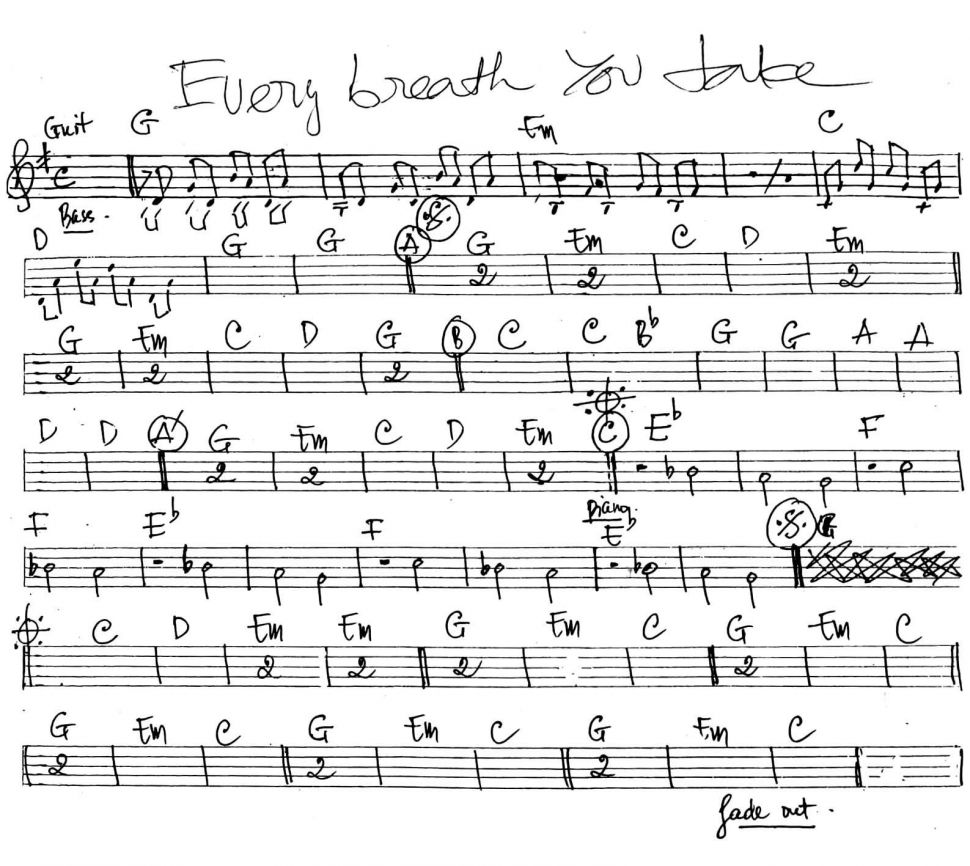 Every breath You take
Guit G Em C
Bass.
D G G A G Em C D Em
2 2 2
G Em C D G B C C B♭ G G A A
2 2 2
D D A' G Em C D Em C E♭ F
2 2 2
Piano
F E♭ F E♭ G
C D Em Em G Em C G Em C
2 2 2 2
G Em C G Em C G Em C
2 2 2
fade out.